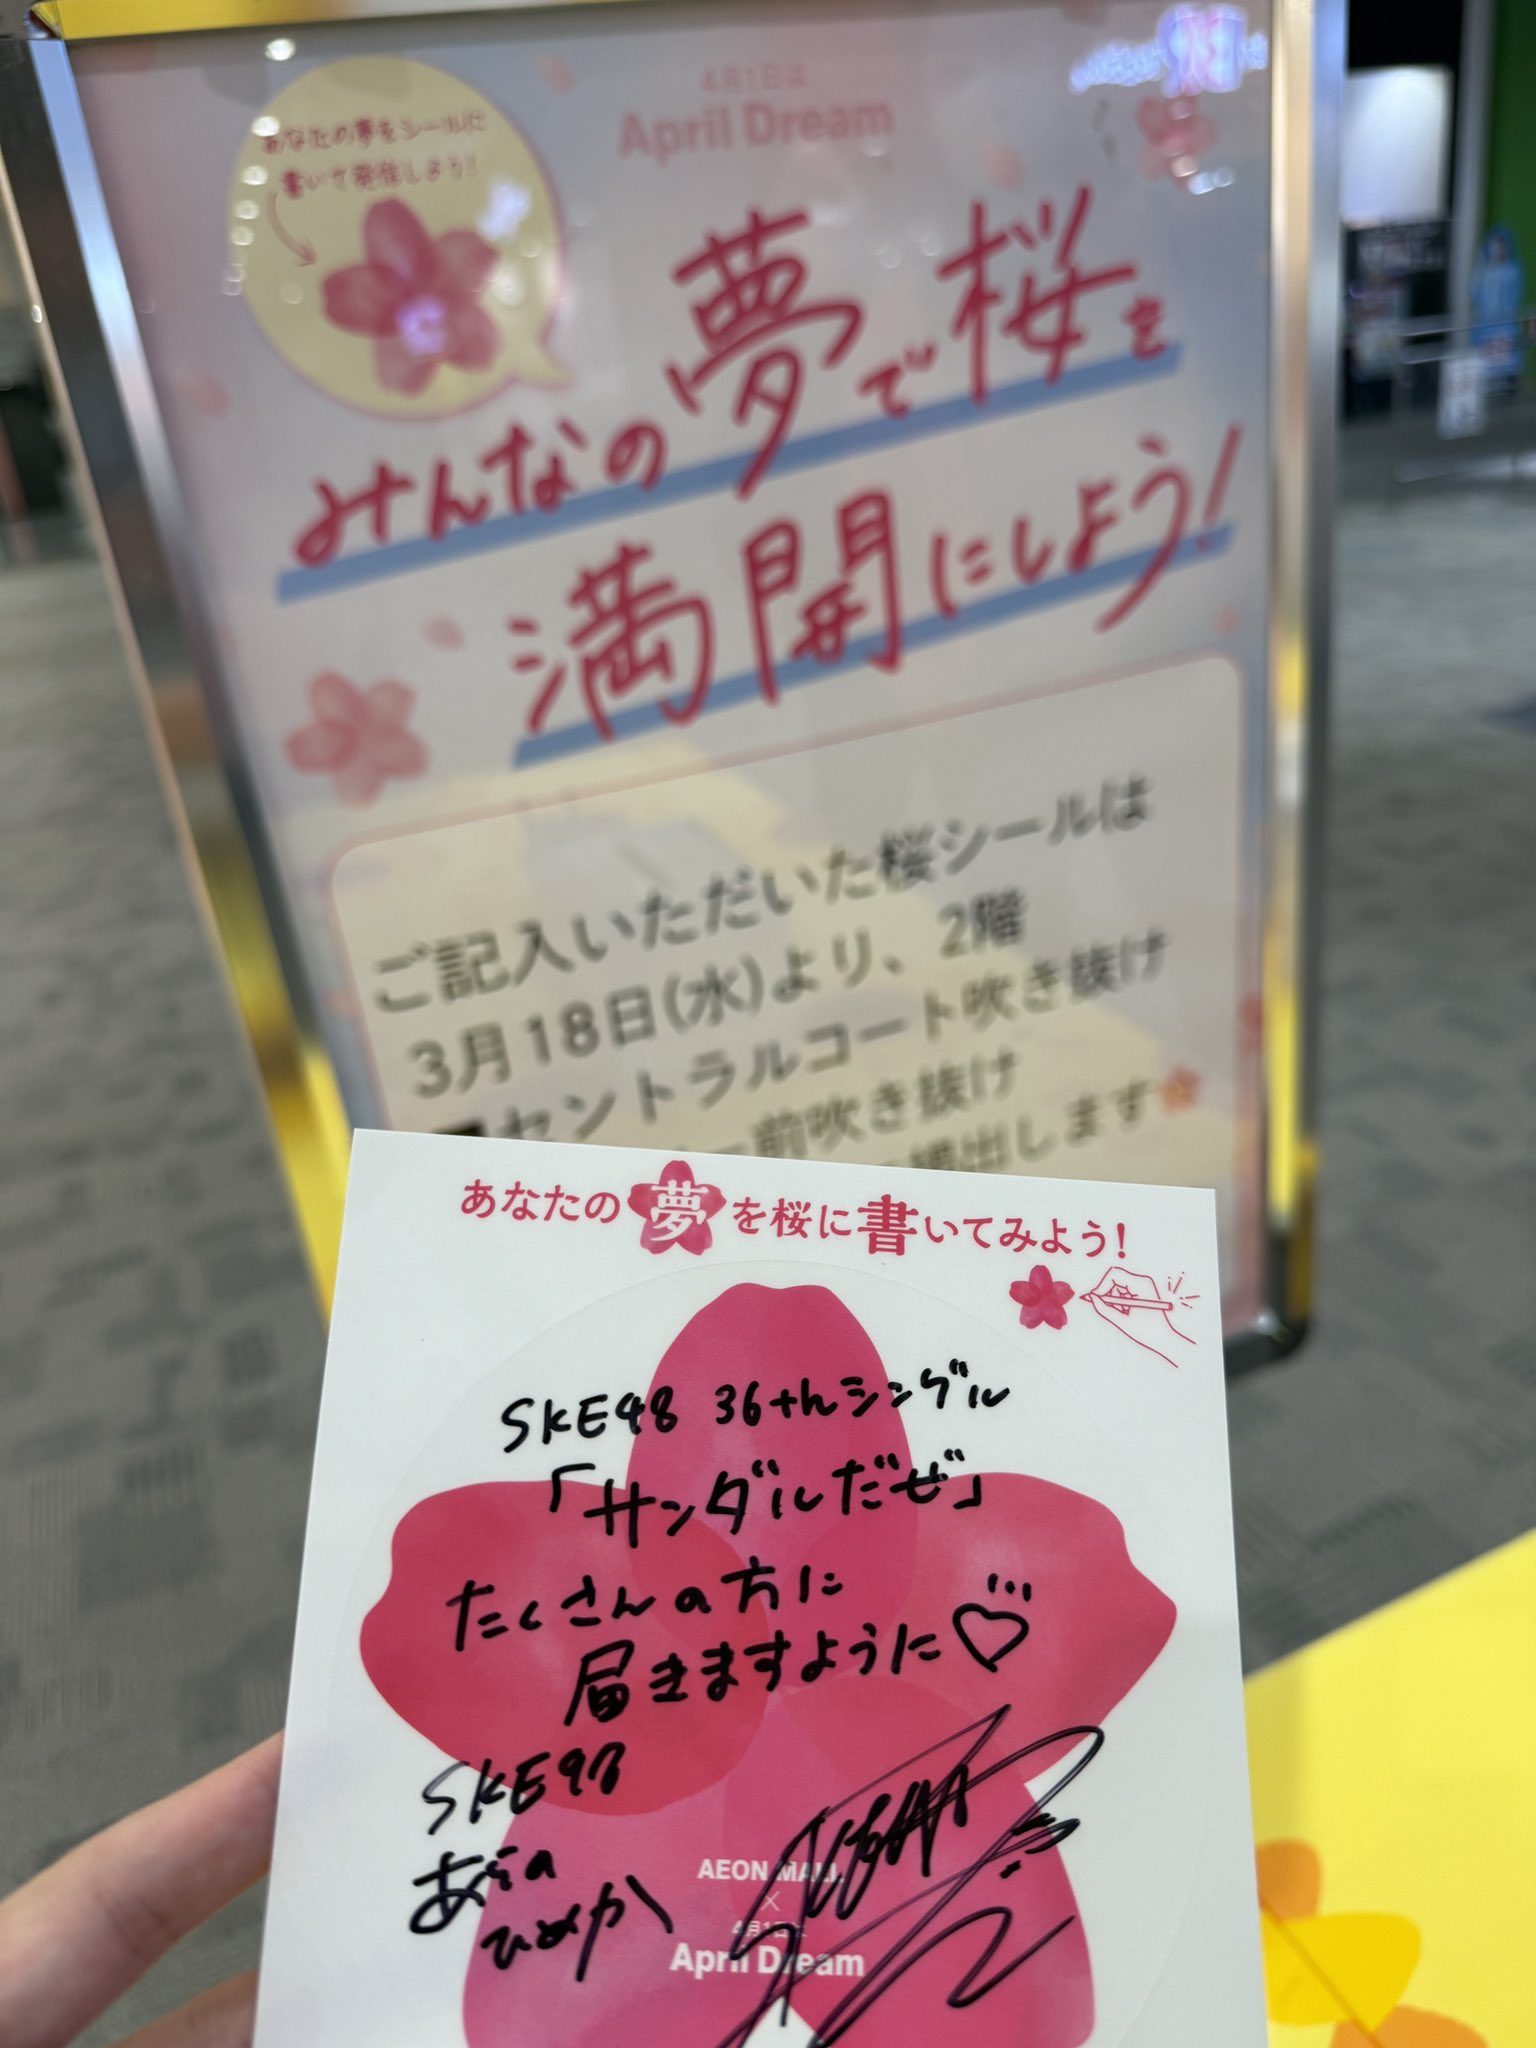 4月1日は
April Dream
あなたの夢をシールに
書いて発信しよう!
みんなの夢で桜を
満開にしよう!
ご記入いただいた桜シールは
3月18日(水)より、2階
セントラルコート吹き抜け
前吹き抜け
出します
あなたの夢を桜に書いてみよう!
SKE48 36thシングル
「サンダルだぜ」
たくさんの方に
届きますように♡
SKE48
あらの
ひめか
AEON MALL
×
4月1日は
April Dream